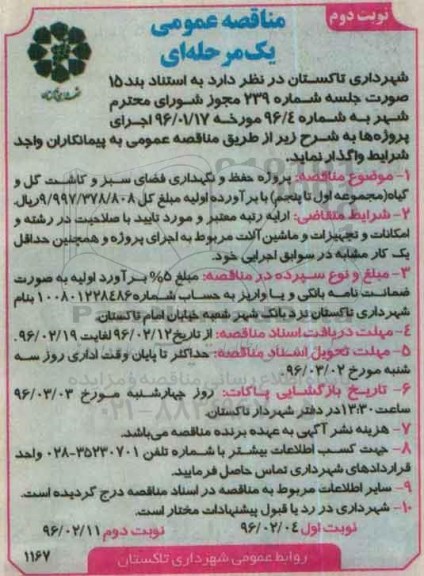 نوبت دوم
مناقصه عمومی
یک مرحله‌ای
شهرداری تاکستان در نظر دارد به استناد بند ۱۵
صورت جلسه شماره ۲۳۹ مجوز شورای محترم
شهر به شماره ۹۶/۴ مورخه ۹۶/۰۱/۱۷ اجرای
پروژه‌ها به شرح زیر از طریق مناقصه عمومی به پیمانکاران واجد
شرایط واگذار نماید.
۱- موضوع مناقصه: پروژه حفظ و نگهداری فضای سبز و کاشت گل و
گیاه(مجموعه اول تا پنجم) با برآورده اولیه مبلغ کل ۹/۹۹۷/۳۷۸/۸۰۸ریال.
۲- شرایط متقاضی: ارایه رتبه معتبر و مورد تایید با صلاحیت در رشته و
امکانات و تجهیزات و ماشین آلات مربوط به اجرای پروژه و همچنین حداقل
یک کار مشابه در سوابق اجرایی خود.
۳- مبلغ و نوع سپرده در مناقصه: مبلغ ۵% برآورد اولیه به صورت
ضمانت نامه بانکی و یا واریز به حساب شماره ۱۰۰۸۰۱۲۲۸۴۸۶ بنام
شهرداری تاکستان نزد بانک شهر شعبه خیابان امام تاکستان.
۴- مهلت دریافت اسناد مناقصه: از تاریخ ۹۶/۰۲/۱۲ لغایت ۹۶/۰۲/۱۹.
۵- مهلت تحویل اسناد مناقصه: حداکثر تا پایان وقت اداری روز سه
شنبه مورخ ۹۶/۰۳/۰۲.
۶- تاریخ بازگشایی پاکات: روز چهارشنبه مورخ ۹۶/۰۳/۰۳
ساعت ۱۳:۳۰ در دفتر شهردار تاکستان
۷- هزینه نشر آگهی به عهده برنده مناقصه می‌باشد.
۸- جهت کسب اطلاعات بیشتر با شماره تلفن ۳۵۲۳۰۷۰۱-۰۲۸ واحد
قراردادهای شهرداری تماس حاصل فرمایید.
۹- سایر اطلاعات مربوط به مناقصه در اسناد مناقصه درج گردیده است.
۱۰- شهرداری در رد یا قبول پیشنهادات مختار است.
نوبت اول ۹۶/۰۲/۰۴ نوبت دوم ۹۶/۰۲/۱۱
روابط عمومی شهرداری تاکستان
۱۱۶۷